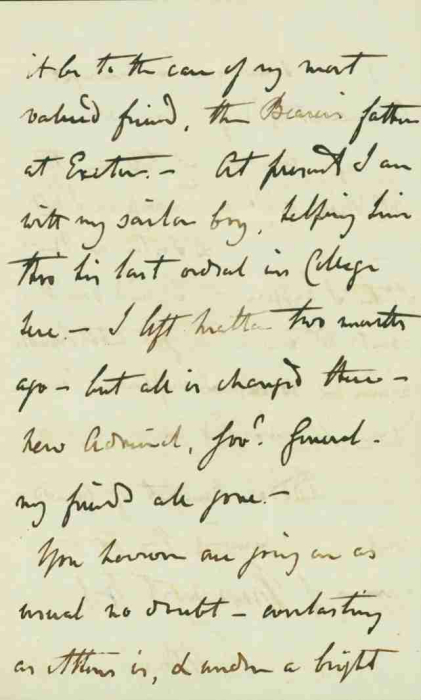 it be to the care of my most
valued friend, the Bearer's father
at Exeter. – At present I am
with my sailor boy, helping him
thro' his last ordeal in College
here – I left Malta two months
ago – but all is changed there –
new Admiral, Gov.r General –
my friends all gone. –
You however are going on as
usual no doubt – everlasting
as Athens is, & under a bright